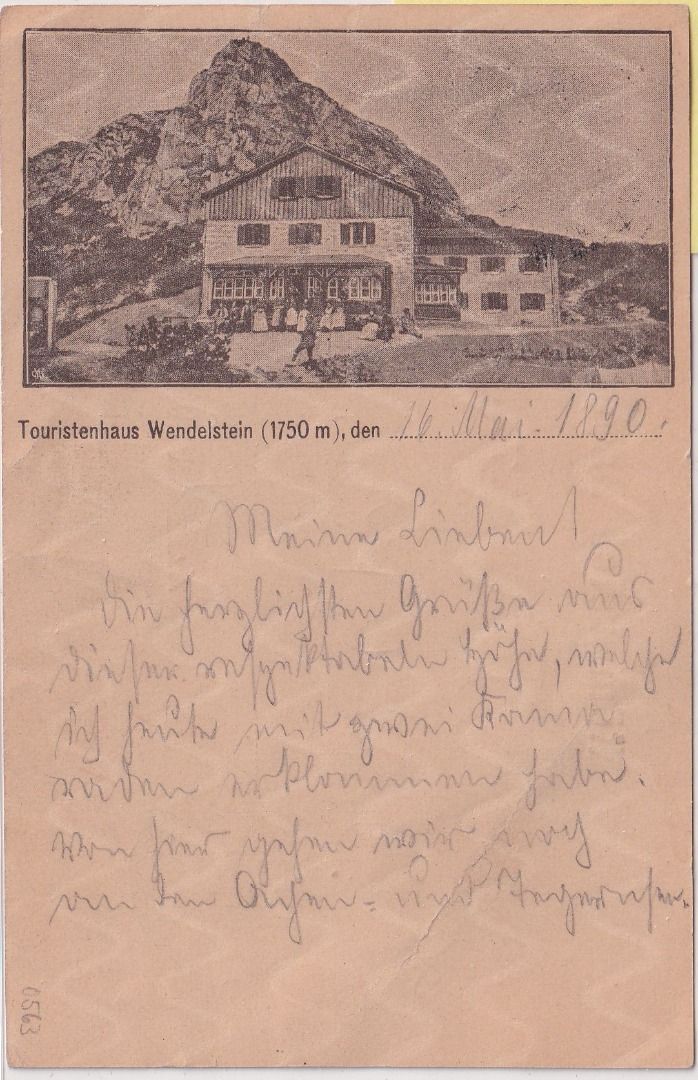 Touristenhaus Wendelstein (1750 m), den 16. Mai. 1890.
Meine Lieben!
Die herzlichsten Grüße aus
dieser respektabeln Höhe, welche
ich heute mit zwei Kama-
raden erklommen habe.
Von hier gehen wir noch
an den Achen- und Tegernsee.
0563